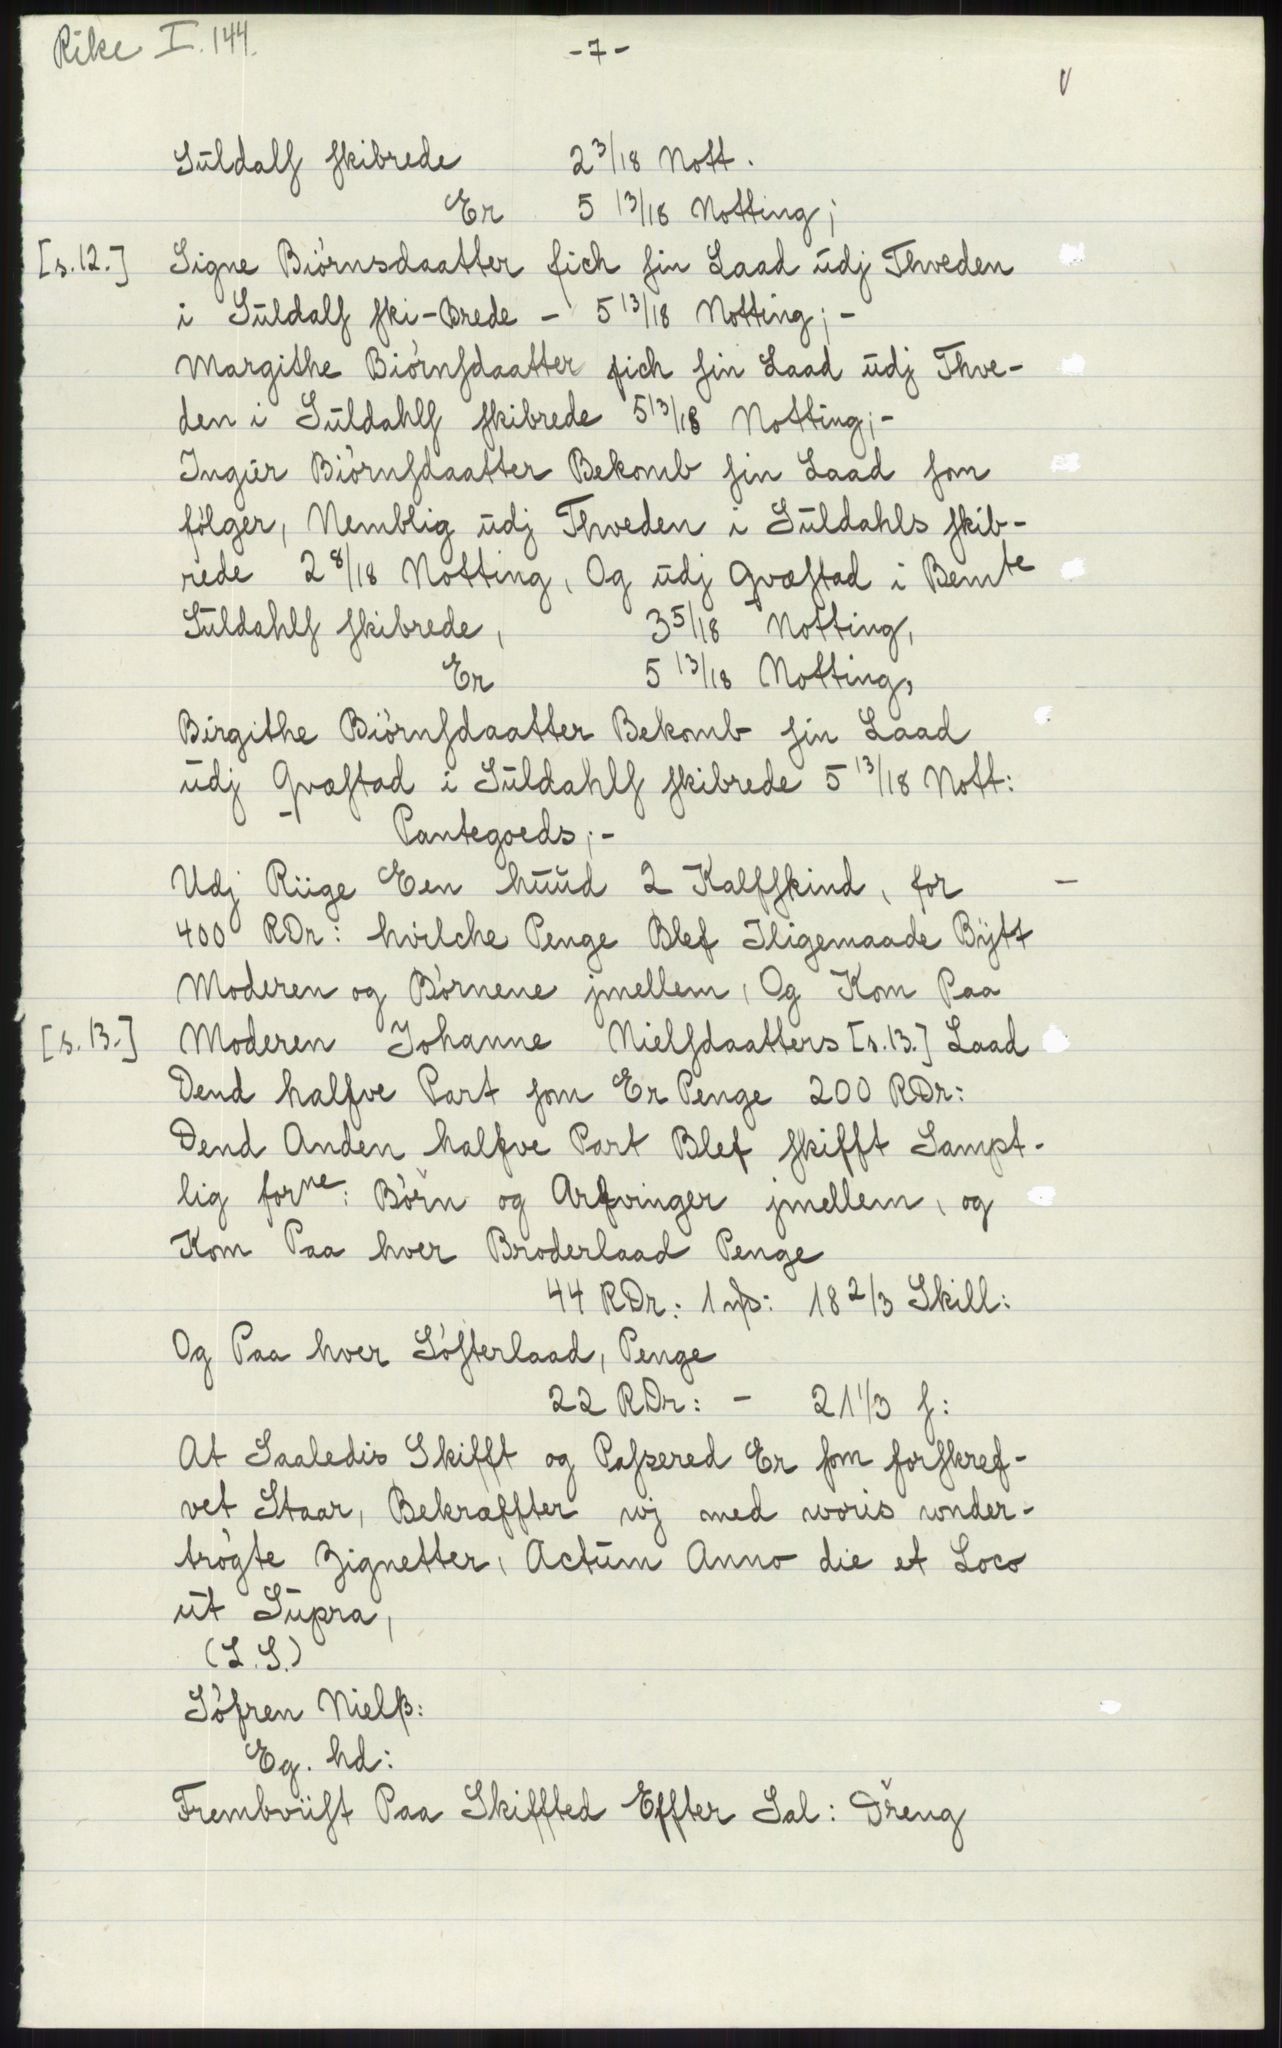 Rike I. 144.
- 7 -
Suldalſ ſkibrede 2 3/18 Nott.
Er 5 13/18 Notting;
[s. 12.] Signe Biörnsdaatter fich ſin Laad udj Thveden
i Suldalſ ſki-Brede - 5 13/18 Notting; -
Margithe Biörnſdaatter fich ſin Laad udj Thve-
den i Suldahlſ ſkibrede 5 13/18 Notting; -
Ingur Biörnſdaatter Bekomb ſin Laad ſom
fölger, Nemblig udj Thveden i Suldahls ſkib-
rede 2 8/18 Notting, Og udj Qvæſtad i Bemte
Suldahlſ ſkibrede, 3 5/18 Notting,
Er 5 13/18 Notting,
Birgithe Biörnſdaatter Bekomb ſin Laad
udj Qvæſtad i Suldahlſ ſkibrede 5 13/18 Nott:
Pantegoeds; -
Udj Riige Een huud 2 Kalfſkind, for
400 RDr: hvilche Penge Blef Iligemaade Bÿtt
Moderen og Börnene jmellem, Og Kom Paa
[s. 13.] Moderen Johanne Nielſdaatters [s. 13.] Laad
Dend halfve Part ſom Er Penge 200 RDr:
Dend Anden halfve Part Blef ſkifft Sampt-
lig forne: Börn og Arfvinger jmellem, og
Kom Paa hver Broderlaad Penge
44 RDr: 1 mß: 18 2/3 Skill:
Og Paa hver Söſterlaad, Penge
22 RDr: - 21 1/3 ſ:
At Saaledis Skifft og Paſzered Er ſom forſkref-
vet Staar, Bekræffter wj med woris wnder-
trögte Zignetter, Actum Anno die et Loco
ut Supra,
(L. S.)
Söfren Nielß:
Eg. hd:
Frembviiſt Paa Skiffted Effter Sal: Dreng